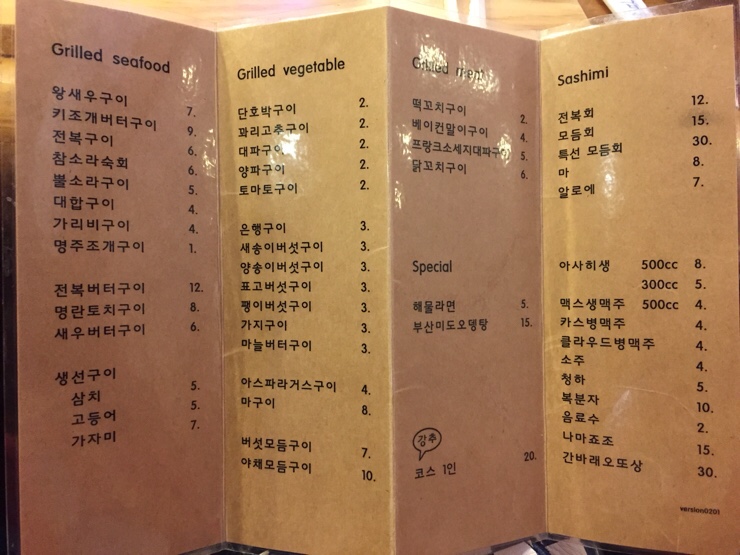 Grilled seafood
왕새우구이 7.
키조개버터구이 9.
전복구이 6.
참소라숙회 6.
뿔소라구이 5.
대합구이 4.
가리비구이 4.
명주조개구이 1.
전복버터구이 12.
명란토치구이 8.
새우버터구이 6.
생선구이
삼치 5.
고등어 5.
가자미 7.
Grilled vegetable
단호박구이 2.
꽈리고추구이 2.
대파구이 2.
양파구이 2.
토마토구이 2.
은행구이 3.
새송이버섯구이 3.
양송이버섯구이 3.
표고버섯구이 3.
팽이버섯구이 3.
가지구이 3.
마늘버터구이 3.
아스파라거스구이 4.
마구이 8.
버섯모듬구이 7.
야채모듬구이 10.
Grilled meat
떡꼬치구이 2.
베이컨말이구이 4.
프랑크소세지대파구이 5.
닭꼬치구이 6.
Special
해물라면 5.
부산미도오뎅탕 15.
강추
코스 1인 20.
Sashimi
전복회 12.
모듬회 15.
특선 모듬회 30.
마 8.
알로에 7.
아사히생 500cc 8.
300cc 5.
맥스생맥주 500cc 4.
카스병맥주 4.
클라우드병맥주 4.
소주 4.
청하 5.
복분자 10.
음료수 2.
나마죠조 15.
간바래오또상 30.
version0201